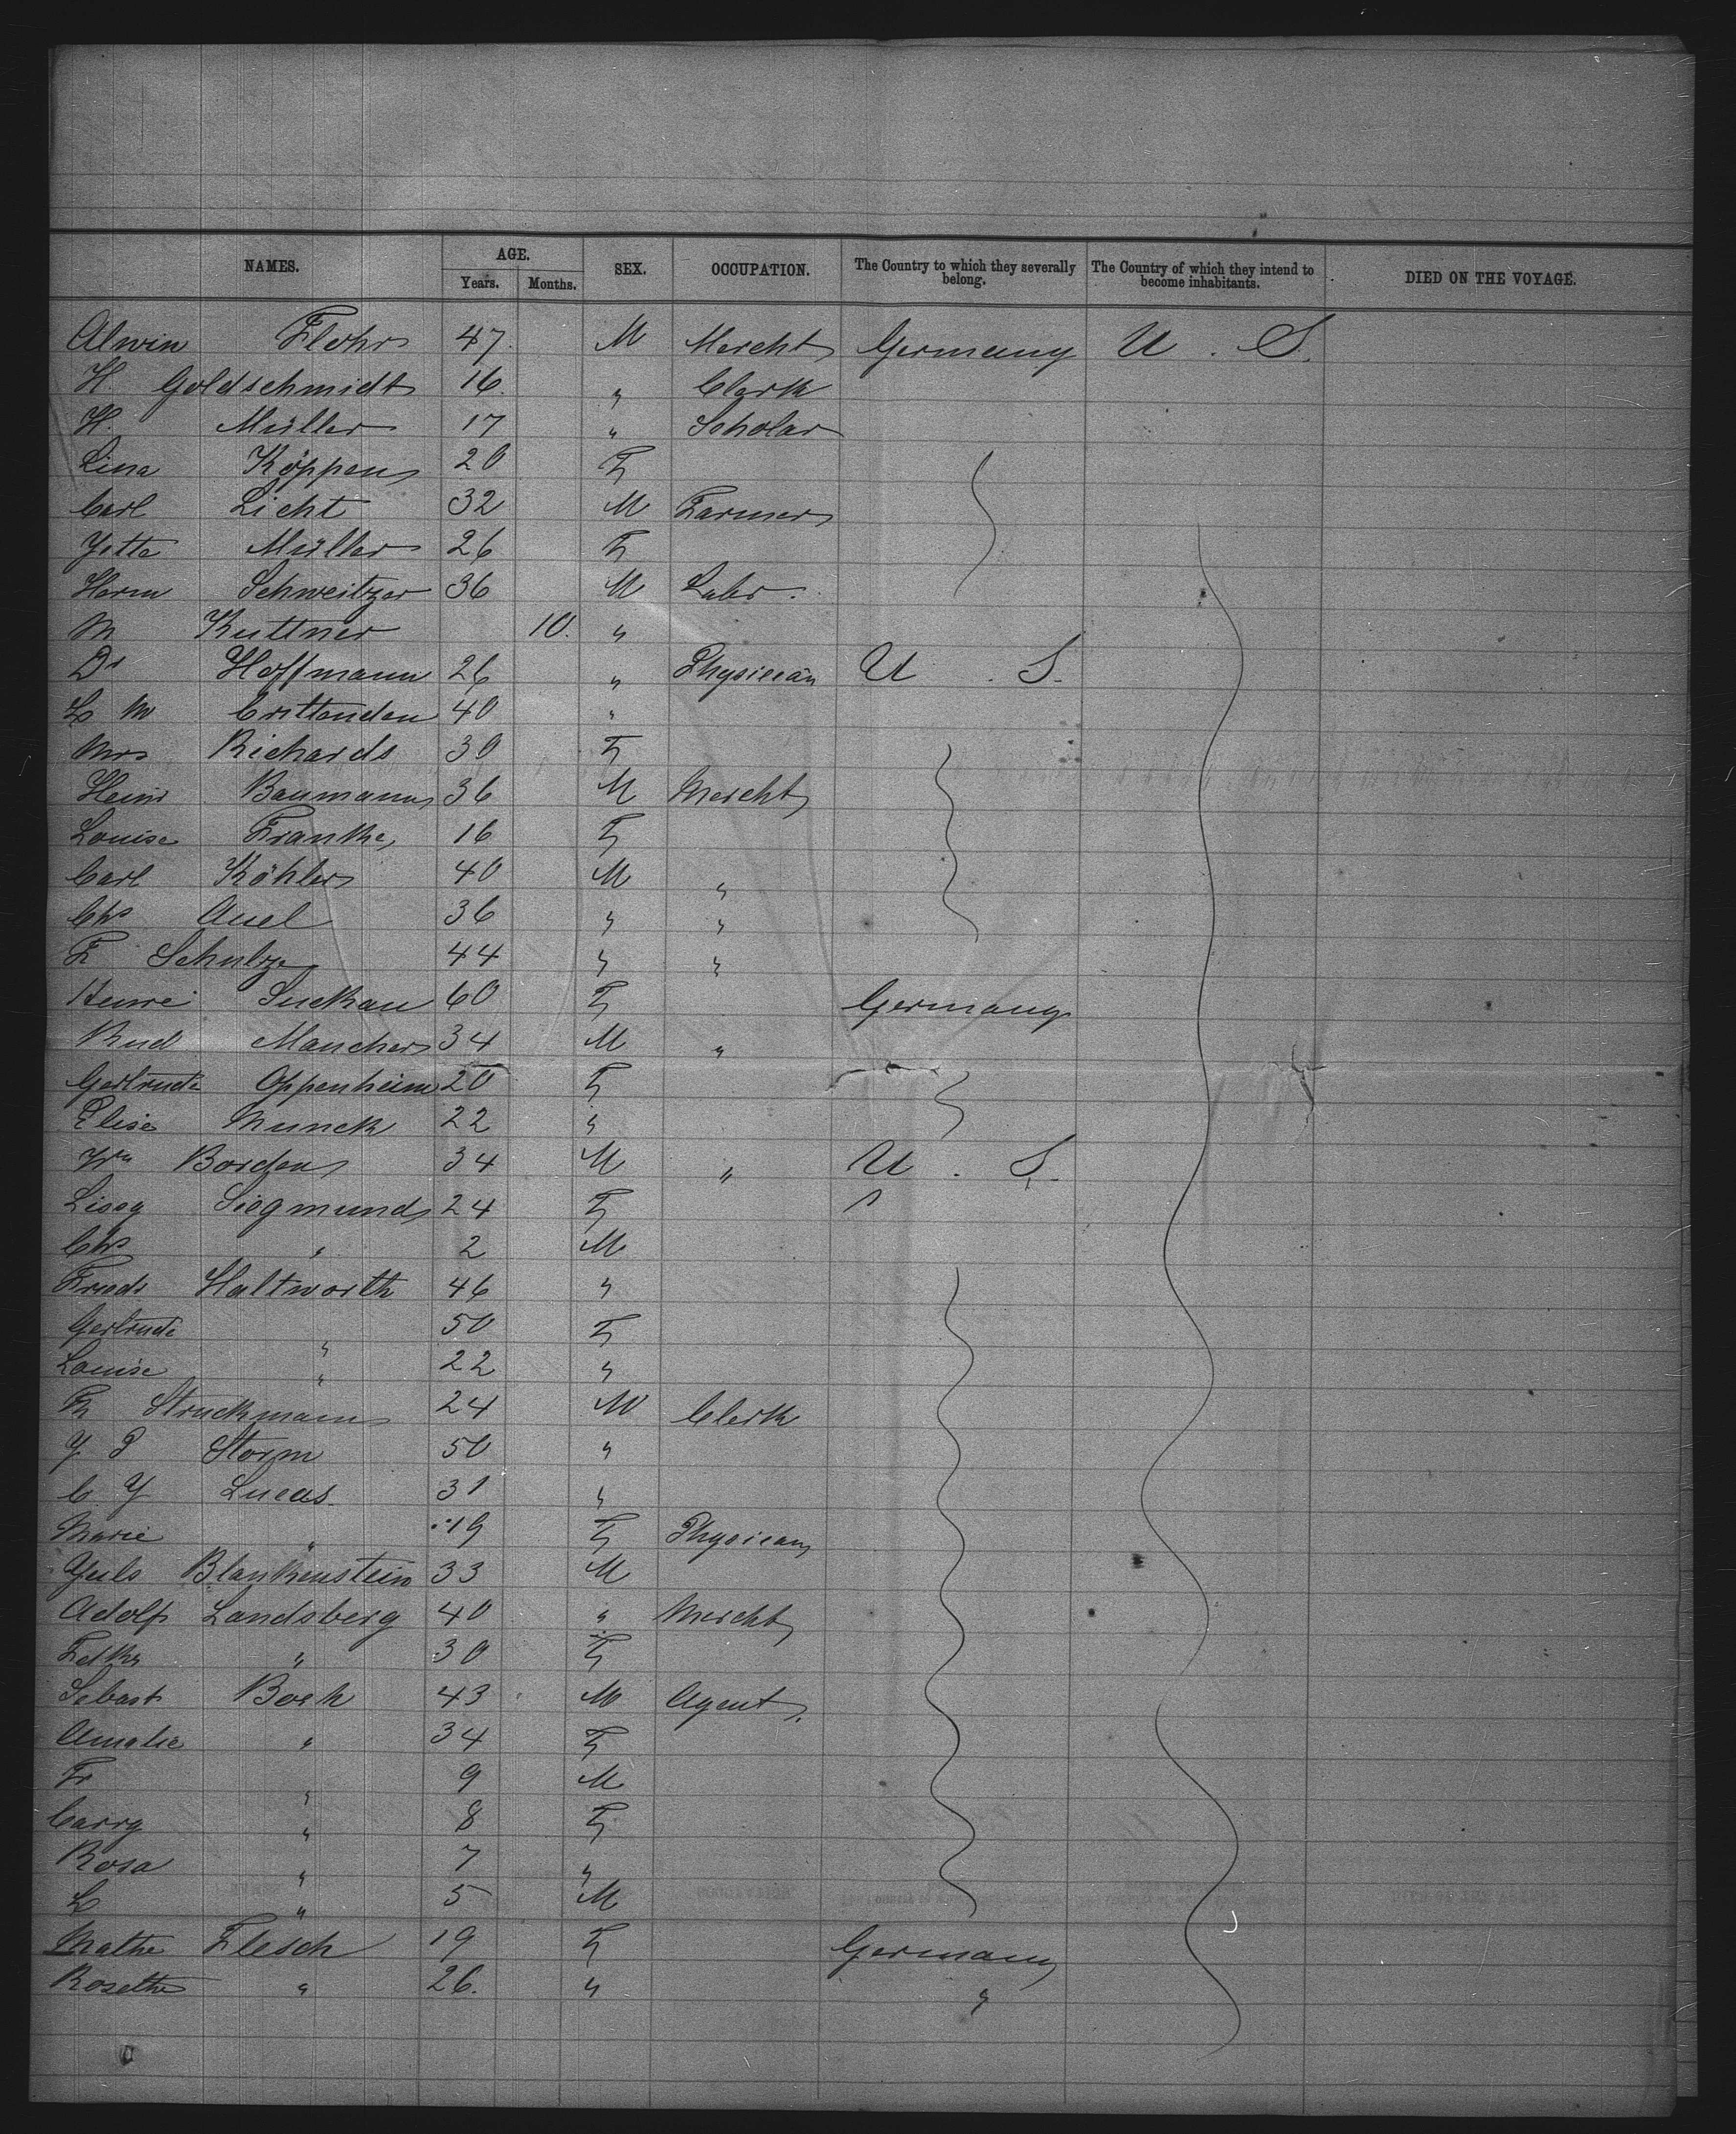 NAMES. AGE. SEX. OCCUPATION. The Country to which they severally belong. The Country of which they intend to become inhabitants. DIED ON THE VOYAGE.
Years. Months.
Alwin Flohr 47 M Mercht Germany U. S.
H Goldschmidt 16 " Clerk
H. Müller 17 " Scholar
Lina Köppen 20 F
Carl Licht 32 M Farmer
Jette Müller 26 F
Herm Schweitzer 36 M Labr.
M Kuttner 10. "
Dr Hoffmann 26 " Physician U. S.
L M Crittenden 40 "
Mrs Richards 30 F
Heinr Baumann 36 M Mercht
Louise Franke 16 F
Carl Köhler 40 M "
Chs Auel 36 " "
F Schultze 44 " "
Henre Suckau 60 F Germany
Rud Mancher 34 M "
Gertrude Oppenheim 20 F
Elise Munck 22 "
Wm Borden 34 M " U. S.
Lissy Siegmund 24 F
Chs " 2 M
Haltworth 46 "
Gertrude " 50 F
Louise " 22 "
Struckmann 24 M Clerk
J P Storm 50 "
C J Lucas 31 "
Marie " 19 F Physician
Juls Blankenstein 33 M
Adolf Landsberg 40 " Mercht
" 30 F
Sebast Bock 43 M Agent
Amalie " 34 F
Fr " 9 M
Carry " 8 F
Rosa " 7 "
L " 5 M
Mathe Flesch 19 F Germany
Rosette " 26. " "